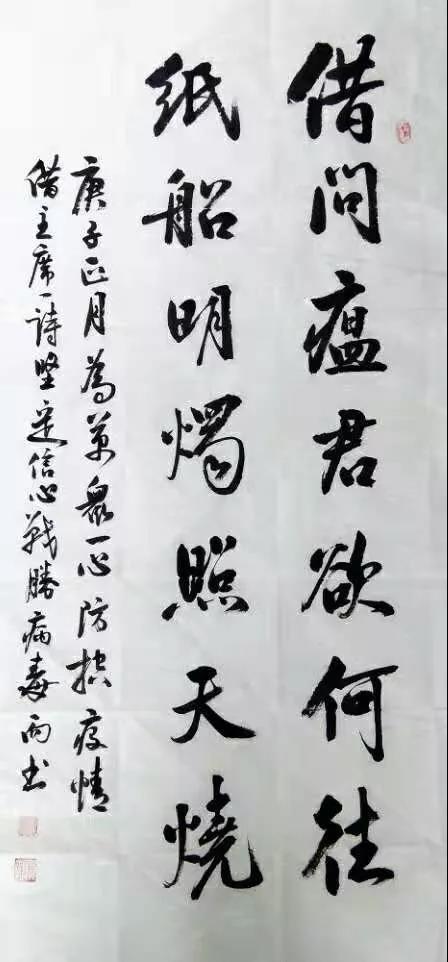 借问瘟君欲何往
纸船明烛照天燒
庚子正月為萬眾一心防控疫情
借主席詩堅定信心戰勝病毒而书